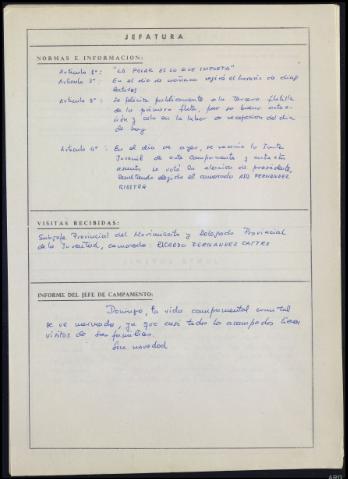 JEFATURA
NORMAS E INFORMACION:
Artículo 1º: "LO PEOR ES LO QUE IMPORTA"
Artículo 2º: En el día de mañana regirá el horario de días
festivos
Artículo 3º: Se felicita públicamente a la tercera flotilla
de la primera flota, por su buena actua-
ción y celo en la labor de recepción del día
de hoy
Artículo 4º: En el día de ayer, se reunió la Junta
Juvenil de este Campamento y entre otros
asuntos se votó la elección de presidente,
resultando elegido el camarada FERNANDEZ
RIESTRA
VISITAS RECIBIDAS:
Subjefe Provincial del Movimiento y Delegado Provincial
de la Juventud, camarada: RICARDO FERNANDEZ CASTRO
INFORME DEL JEFE DE CAMPAMENTO:
Domingo, la vida campamental como tal
se ve mermada, ya que casi todos los acampados tienen
visitas de sus familias.
Sin novedad